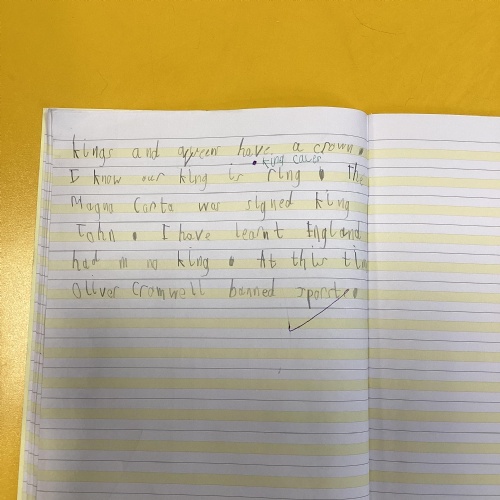 kings and queens have a crown.
king
I know our king is ring. The
Magna Carta was signed king
John. I have learnt England
had m no king. At this tim
Oliver Cromwell banned sports.